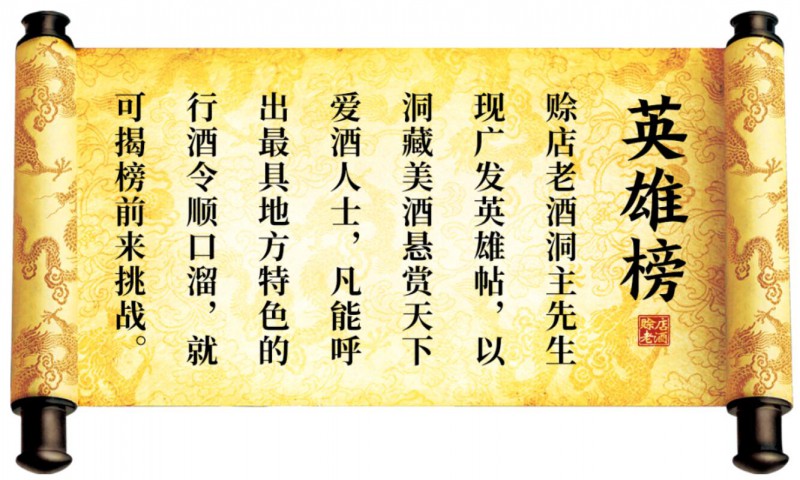 英雄榜
赊店老酒
赊店老酒洞主先生
现广发英雄帖，以
洞藏美酒悬赏天下
爱酒人士，凡能呼
出最具地方特色的
行酒令顺口溜，就
可揭榜前来挑战。